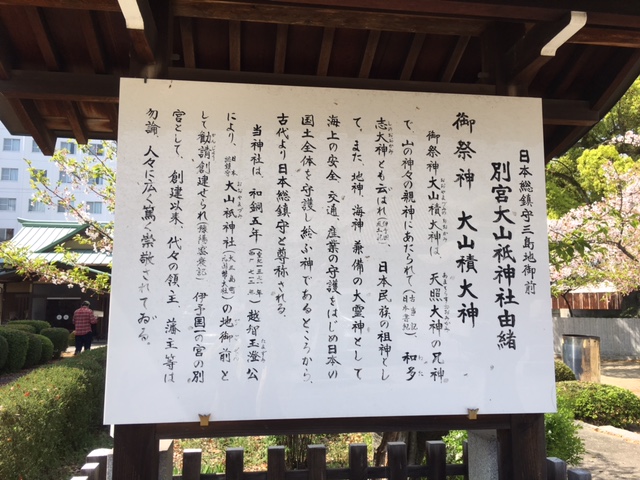 日本総鎮守三島地御前
別宮大山祇神社由緒
御祭神 大山積大神
御祭神大山積大神は 天照大神の兄神
で、山の神々の親神にあたられて(古事記・日本書紀)、和多
志大神とも云はれ 日本民族の祖神とし
て、また、地神、海神兼備の大霊神として
海上の安全、交通、産業の守護をはじめ日本の
国土全体を守護し給ふ神であるところから、
古代より日本総鎮守と尊称される。
当神社は、和銅五年 越智玉澄公
により、大山祇神社の地御前と
して勧請創建せられ 伊予国一の宮の別
宮として、創建以来、代々の領主、藩主等は
勿論、人々に広く篤く崇敬されてゐる。